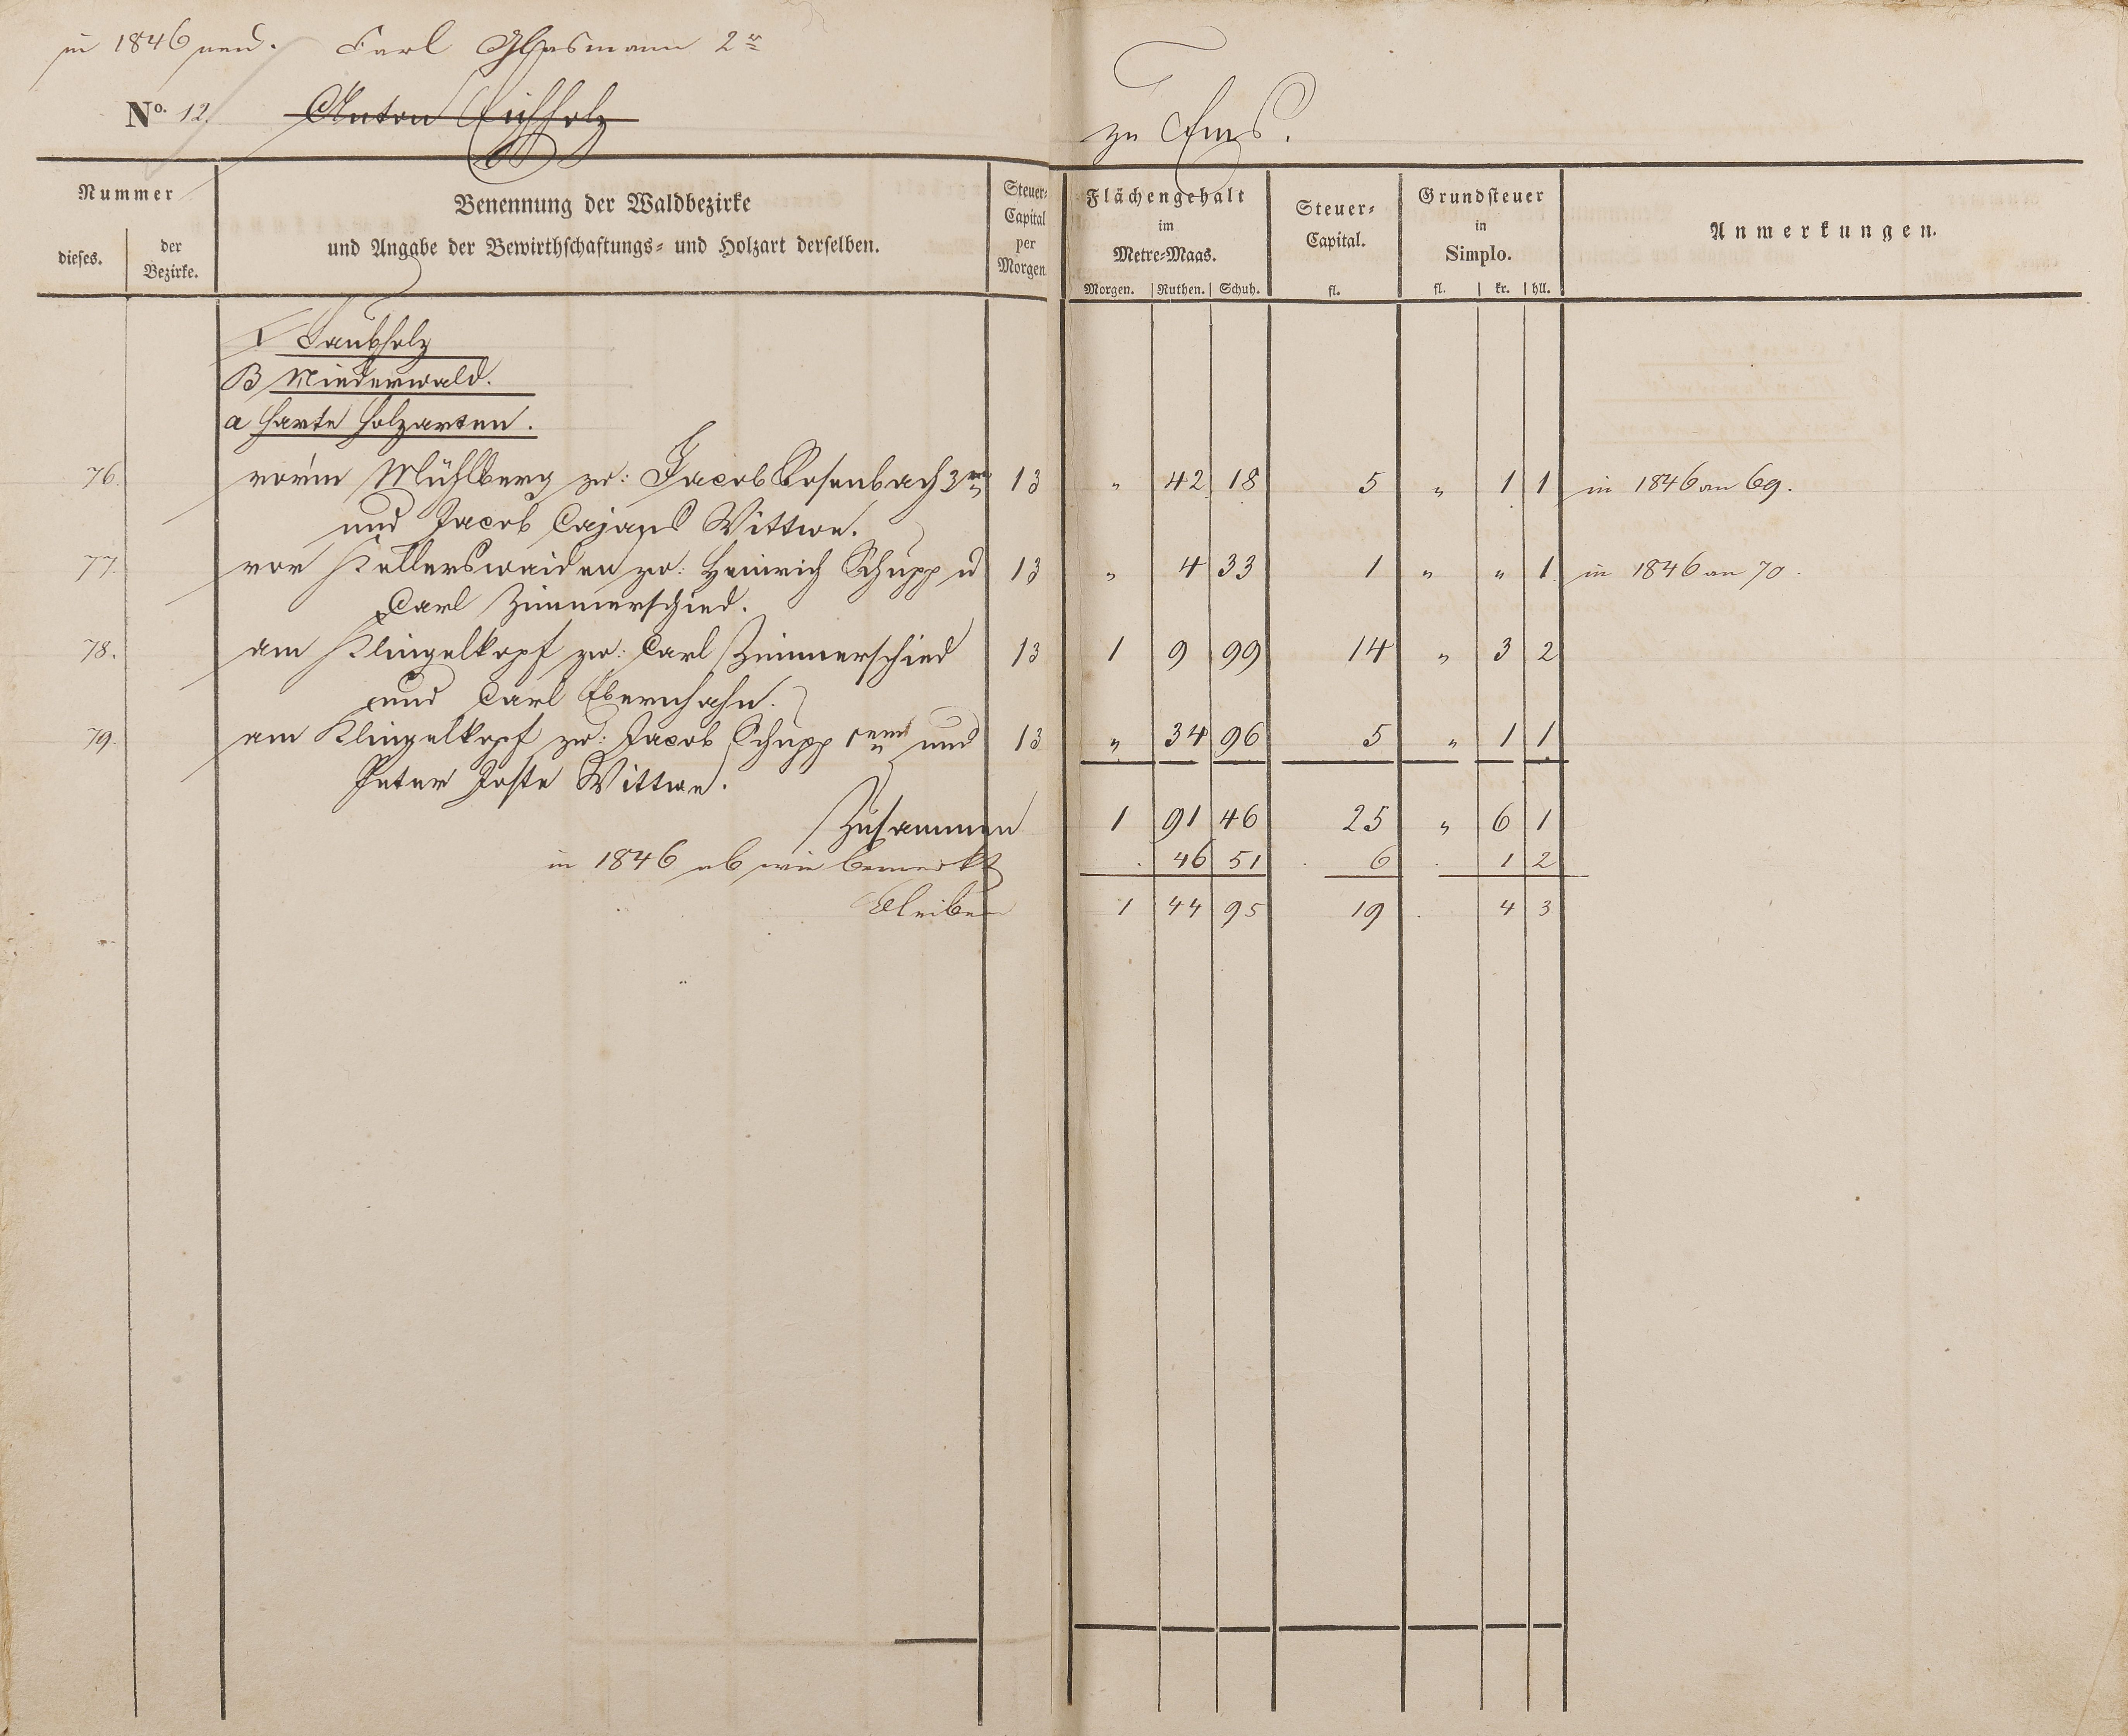 in 1846 nun. Carl Glasmann 2r
No. 12. Anton Eichholz zu Ems.
Nummer
dieses.
der
Bezirke.
Benennung der Waldbezirke
und Angabe der Bewirthschaftungs- und Holzart derselben.
Steuer-
Capital
per
Morgen.
Flächengehalt
im
Metre-Maas.
Morgen. Ruthen. Schuh.
Steuer-
Capital.
fl.
Grundsteuer
in
Simplo.
fl. kr. hll.
Anmerkungen.
I Laubholz
B Niederwald.
a harte Holzarten.
76. vorm Mühlberg zw: Jacob Rosenbach 3n 13 " 42 18 5 " 1 1 in 1846 an 69.
und Jacob Wittwe.
77. vor Kellersweiden zw: Heinrich Schupp u 13 " 4 33 1 " " 1 in 1846 an 70.
Carl Zimmerschied.
78. am Klingelkopf zw: Carl Zimmerschied 13 1 9 99 14 " 3 2
und Carl Ebernhahn.
79. am Klingelkopf zw: Jacob Schupp 1en und 13 " 34 96 5 " 1 1
Peter Joste Wittwe.
Zusammen 1 91 46 25 " 6 1
in 1846 ab wie bemerkt . 46 51 . 6 . 1 2
bleiben 1 44 95 19 . 4 3